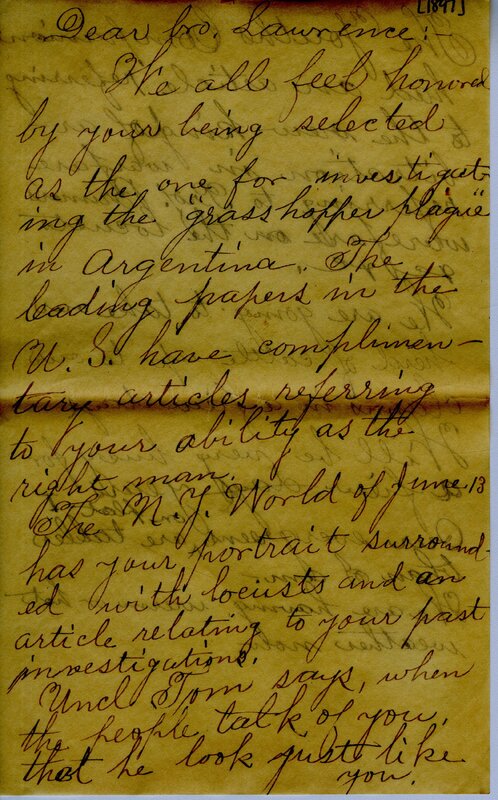 [1897]
Dear bro. Lawrence:-
We all feel honored
by your being selected
as the one for investigat-
ing the "grasshopper plague"
in Argentina. The
leading papers in the
U. S. have complimen-
tary articles referring
to your ability as the
right man.
The N.Y. World of June 13
has your portrait surround-
ed with locusts and an
article relating to your past
investigations.
Uncl Tom says, when
the people talk of you,
that he look just like
you.